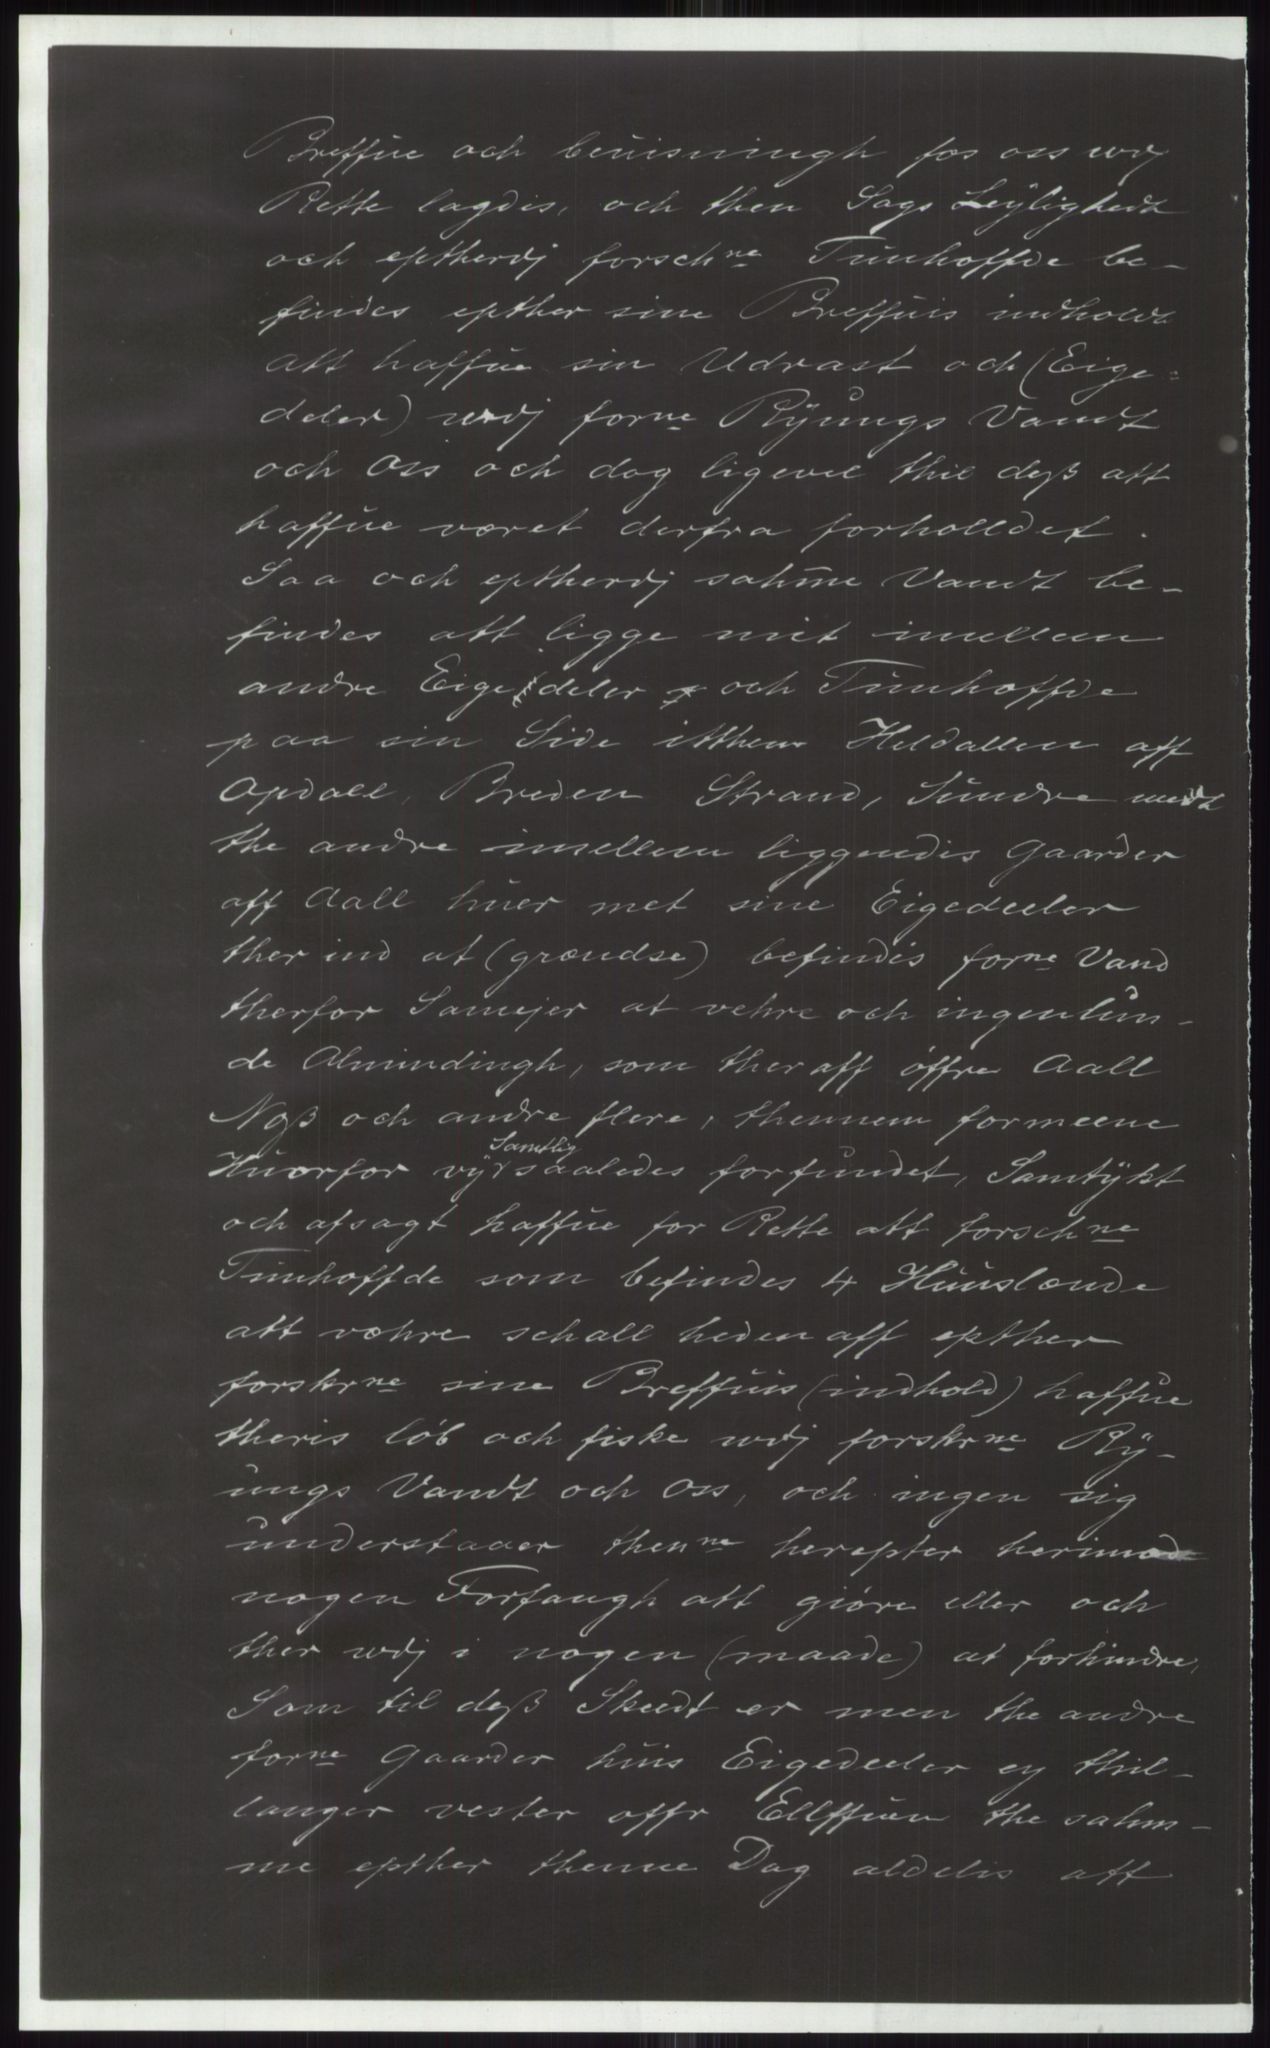 Breffue och beuisningh for oss udj
Rette lagdis, och then Sags Leÿlighedt
och eptherdj forschne Tunhoffde be-
findes epther sine Breffuis indholdt
att haffue sin Udrast och (Eige-
deler) udj forne Rÿungs Vandt
och Oss och dog ligevel thil deß att
haffue været derfra forholldet.
Saa och eptherdj sahme Vandt be-
findes att ligge mit imellem
andre Eigedeler och Tunhoffde
paa sin Side itthem Heldallen aff
Opdall, Breden Strand, Sundre medt
the andre imellem liggendis Gaarder
aff Aall huer met sine Eigedeeler
ther ind at (grændse) befindis forne Vand
therfor Samejer at vehre och ingenlun-
de Almindingh, som ther aff öffre Aall
Noß och andre flere, thennem formeene
Huorfor vÿ Samtlig saaledes forfundet, Samtÿkt
och afsagt haffue for Rette att forschne
Tunhoffde som befindes 4 Huuslænde
att væhre schall heden aff epther
forskrne sine Breffuis (indhold) haffue
theris löb och fiske udj forskrne Rÿ-
ungs Vandt och Oss, och ingen sig
understaaer thenne herepter herimod
nogen Forfangh att giöre eller och
ther udj i nogen (maade) at forhindre,
Som til deß Skeedt er men the andre
forne Gaarder huis Eigedeeler ey thil-
langer vester offr Ellffuen the sahm-
me epther thenne Dag aldelis att